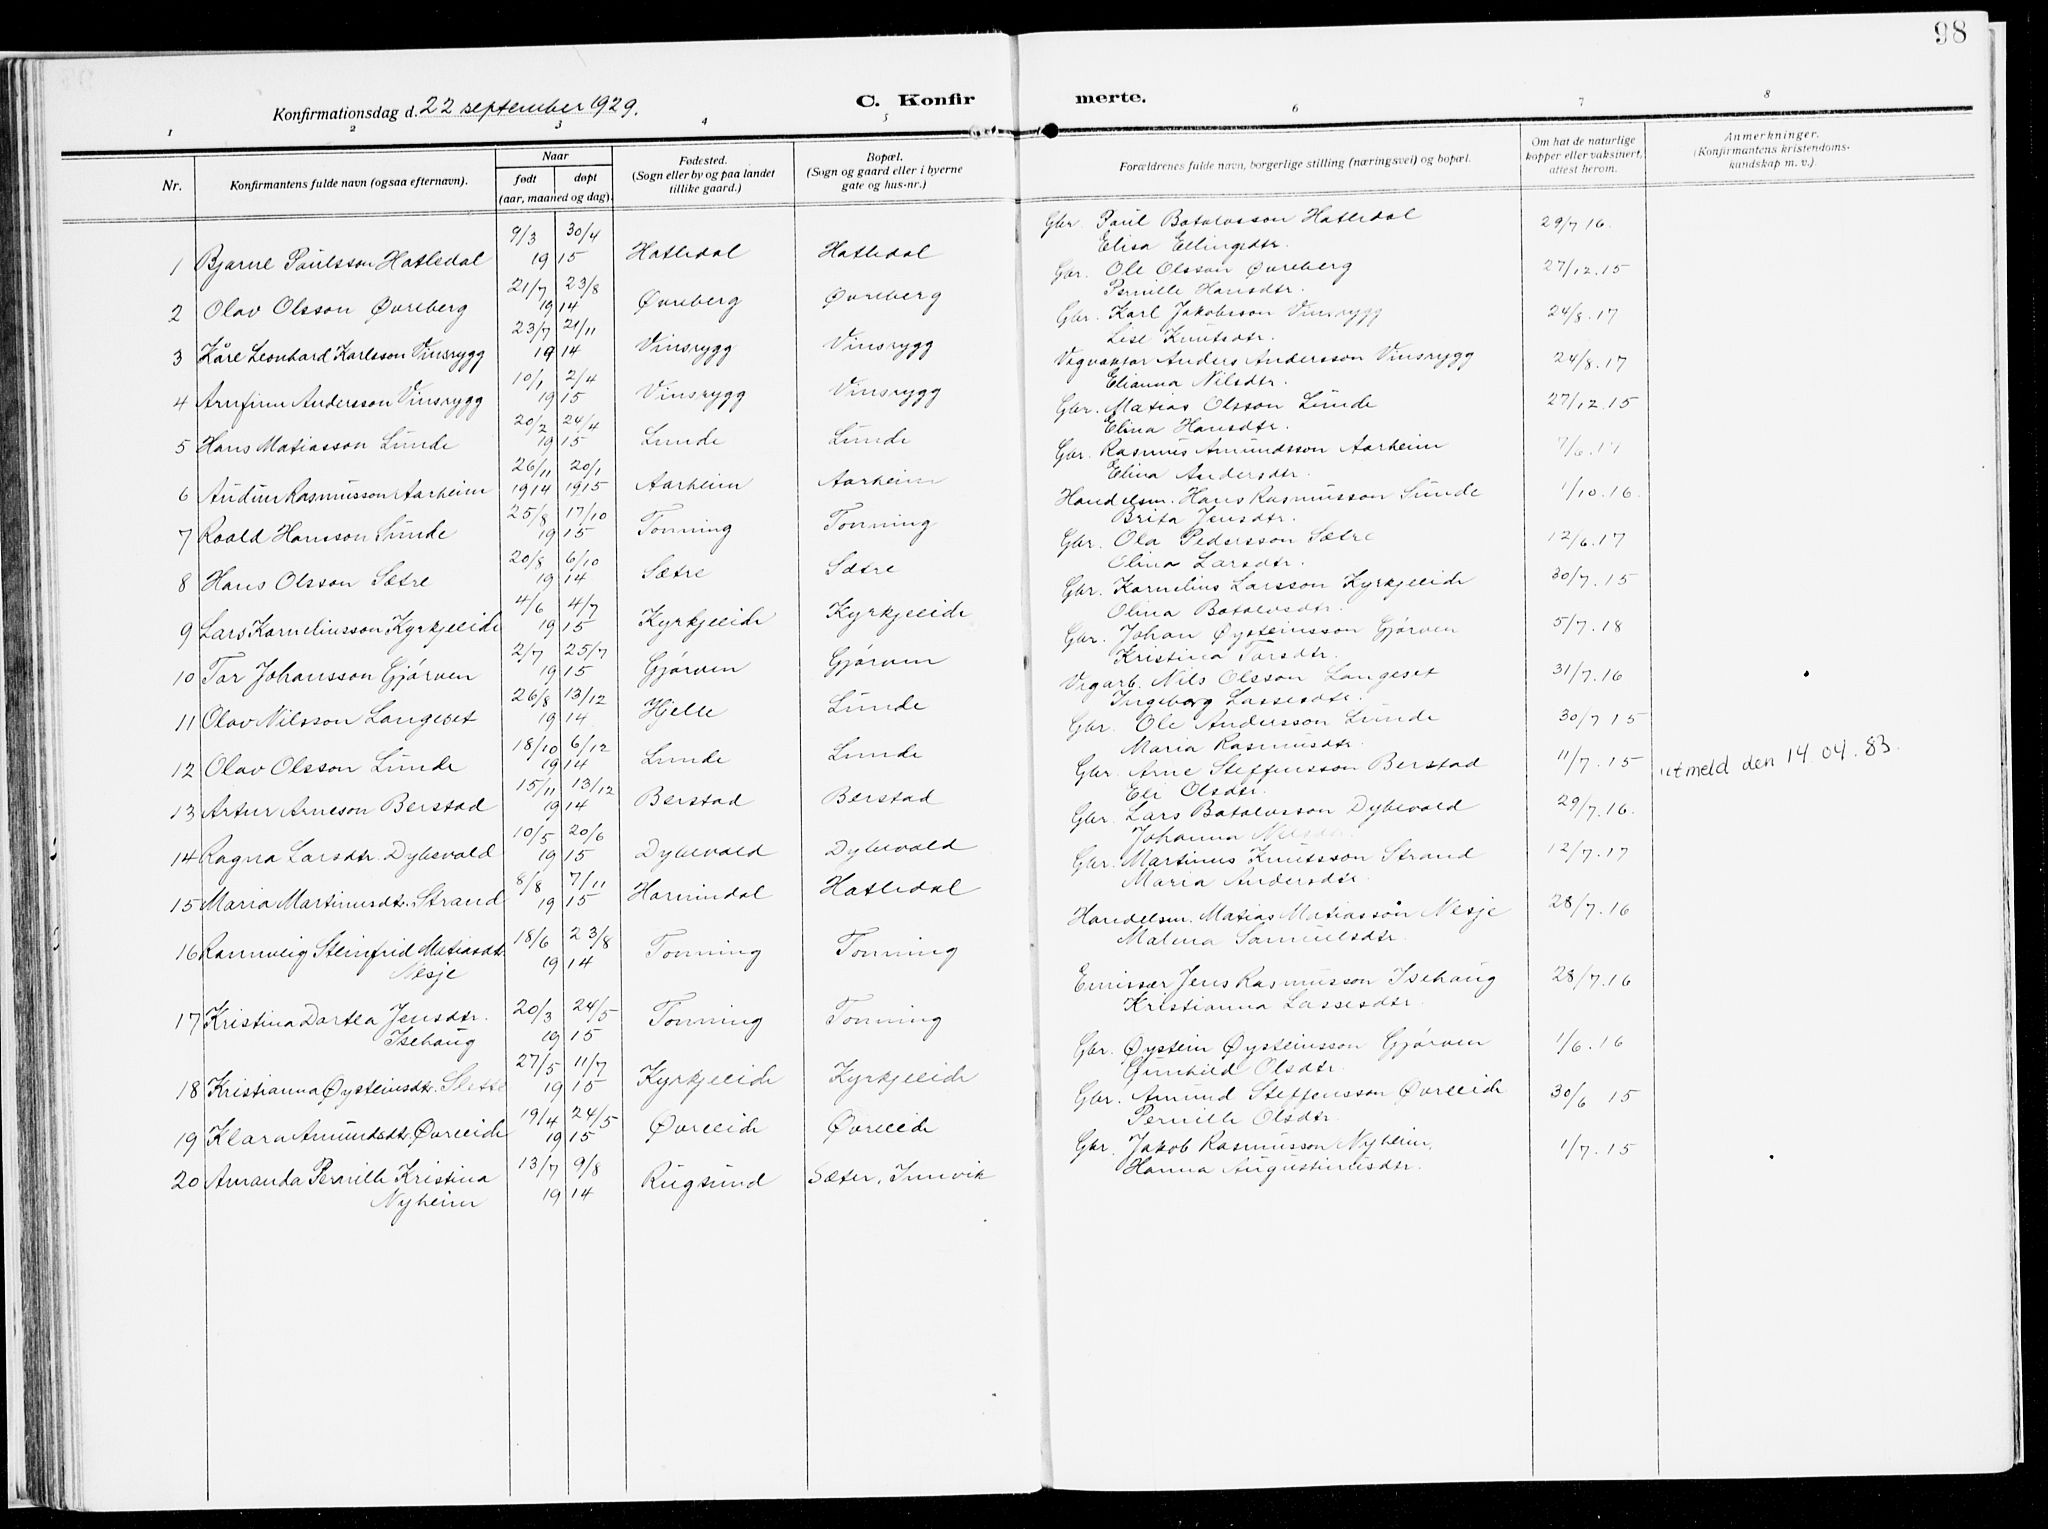 98
Konfirmationsdag d. 22 september 1929.
C. Konfirmerte.
1 2 3 4 5 6 7 8
Nr.
Konfirmantens fulde navn (ogsaa efternavn).
Naar
født døpt
(aar, maaned og dag)
Fødested.
(Sogn eller by og paa landet
tillike gaard.)
Bopæl.
(Sogn og gaard eller i byerne
gate og hus-nr.)
Forældrenes fulde navn, borgerlige stilling (næringsvei) og bopæl.
Om hat de naturlige
kopper eller vaksinert,
attest herom.
Anmerkninger.
(Konfirmantens kristendoms-
kundskap m. v.)
1 Bjarne Paulsson Hatledal 9/3 30/4 1915 Hatledal Hatledal Gbr. Paul Batolvsson Hatledal 29/7 16.
Elisa Ellingsdtr.
2 Olav Olsson Øvreberg 21/7 23/8 1914 Øvreberg Øvreberg Gbr. Ole Olsson Øvreberg 27/12.15
Pernille Hansdtr.
3 Kåre Leonhard Karlsson Vinsrygg 23/7 21/11 1914 Vinsrygg Vinsrygg Gbr. Karl Jakobsson Vinsrygg 24/8.17
Lise Knutsdtr.
4 Arnfinn Andersson Vinsrygg 10/1 2/4 1915 Vinsrygg Vinsrygg Vegvaktar Anders Andersson Vinsrygg 24/8.17
Elianna Nilsdtr.
5 Hans Matiasson Lunde 20/2 24/4 1915 Lunde Lunde Gbr. Matias Olsson Lunde 27/12.15
Elina Hansdtr.
6 Audun Rasmusson Aarheim 26/11 1914 20/1 1915 Aarheim Aarheim Gbr. Rasmus Amundsson Aarheim
Elina Andersdtr.
7 Roald Hansson Sunde 25/8 17/10 1915 Tonning Tonning Handelsm. Hans Rasmusson Sunde 1/10.16.
Brita Jensdtr.
8 Hans Olsson Sætre 20/8 6/10 1914 Sætre Sætre Gbr. Ola Pedersson Sætre 12/6.17
Elina Larsdtr.
9 Lars Korneliusson Kyrkjeeide 4/6 4/7 1915 Kyrkjeeide Kyrkjeeide Gbr. Kornelius Larsson Kyrkjeeide 30/7.15
Olina Batolvsdtr.
10 Tor Johansson Gjørven 2/7 25/7 1915 Gjørven Gjørven Gbr. Johan Øysteinsson Gjørven 5/7.18
Kristina Torsdtr.
11 Olav Nilsson Langeset 26/8 13/12 1914 Hjelle Lunde Vegarb. Nils Olsson Langeset 31/7.16
Ingeborg Lassesdtr.
12 Olav Olsson Lunde 18/10 6/12 1914 Lunde Lunde Gbr. Ole Andersson Lunde 30/7 15
Maria Rasmusdtr.
13 Artur Arneson Berstad 15/11 13/12 1914 Berstad Berstad Gbr. Arne Steffensson Berstad 11/7.15 utmeld den 14.04.83.
Eli Olsdtr.
14 Ragna Larsdtr. Dybevald 10/5 20/6 1915 Dybevald Dybevald Gbr. Lars Batolvsson Dybevald 29/7.16.
Johanna
15 Maria Martinusdtr. Strand 8/8 7/11 1915 Hornindal Hatledal Gbr. Martinus Knutsson Strand 12/7.17
Maria Andersdtr.
16 Rannveig Steinfrid Matiasdtr. 18/6 23/8 1914 Tonning Tonning Handelsm. Matias Matiasson Nesje 28/7.16
Nesje Malena Samuelsdtr.
17 Kristina Dortea Jensdtr. 20/3 24/5 1915 Tonning Tonning Emissær Jens Rasmusson Isehaug 28/7.16
Isehaug Kristianna Lassesdtr.
18 Kristianna Øysteinsdtr. Slette 27/5 11/7 1915 Kyrkjeeide Kyrkjeeide Gbr. Øystein Øysteinsson Gjørven 1/6.16
Gunhild Olsdtr.
19 Klara Amundsdtr. Øvreeide 19/4 24/5 1915 Øvreeide Øvreeide Gbr. Amund Steffensson Øvreeide 30/6 15
Pernille Olsdtr.
20 Amanda Pernille Kristina 13/7 9/8 1914 Rugsund Sæter, Innvik Gbr. Jakob Rasmusson Nyheim. 1/7.15
Nyheim Hanna Augustinusdtr.